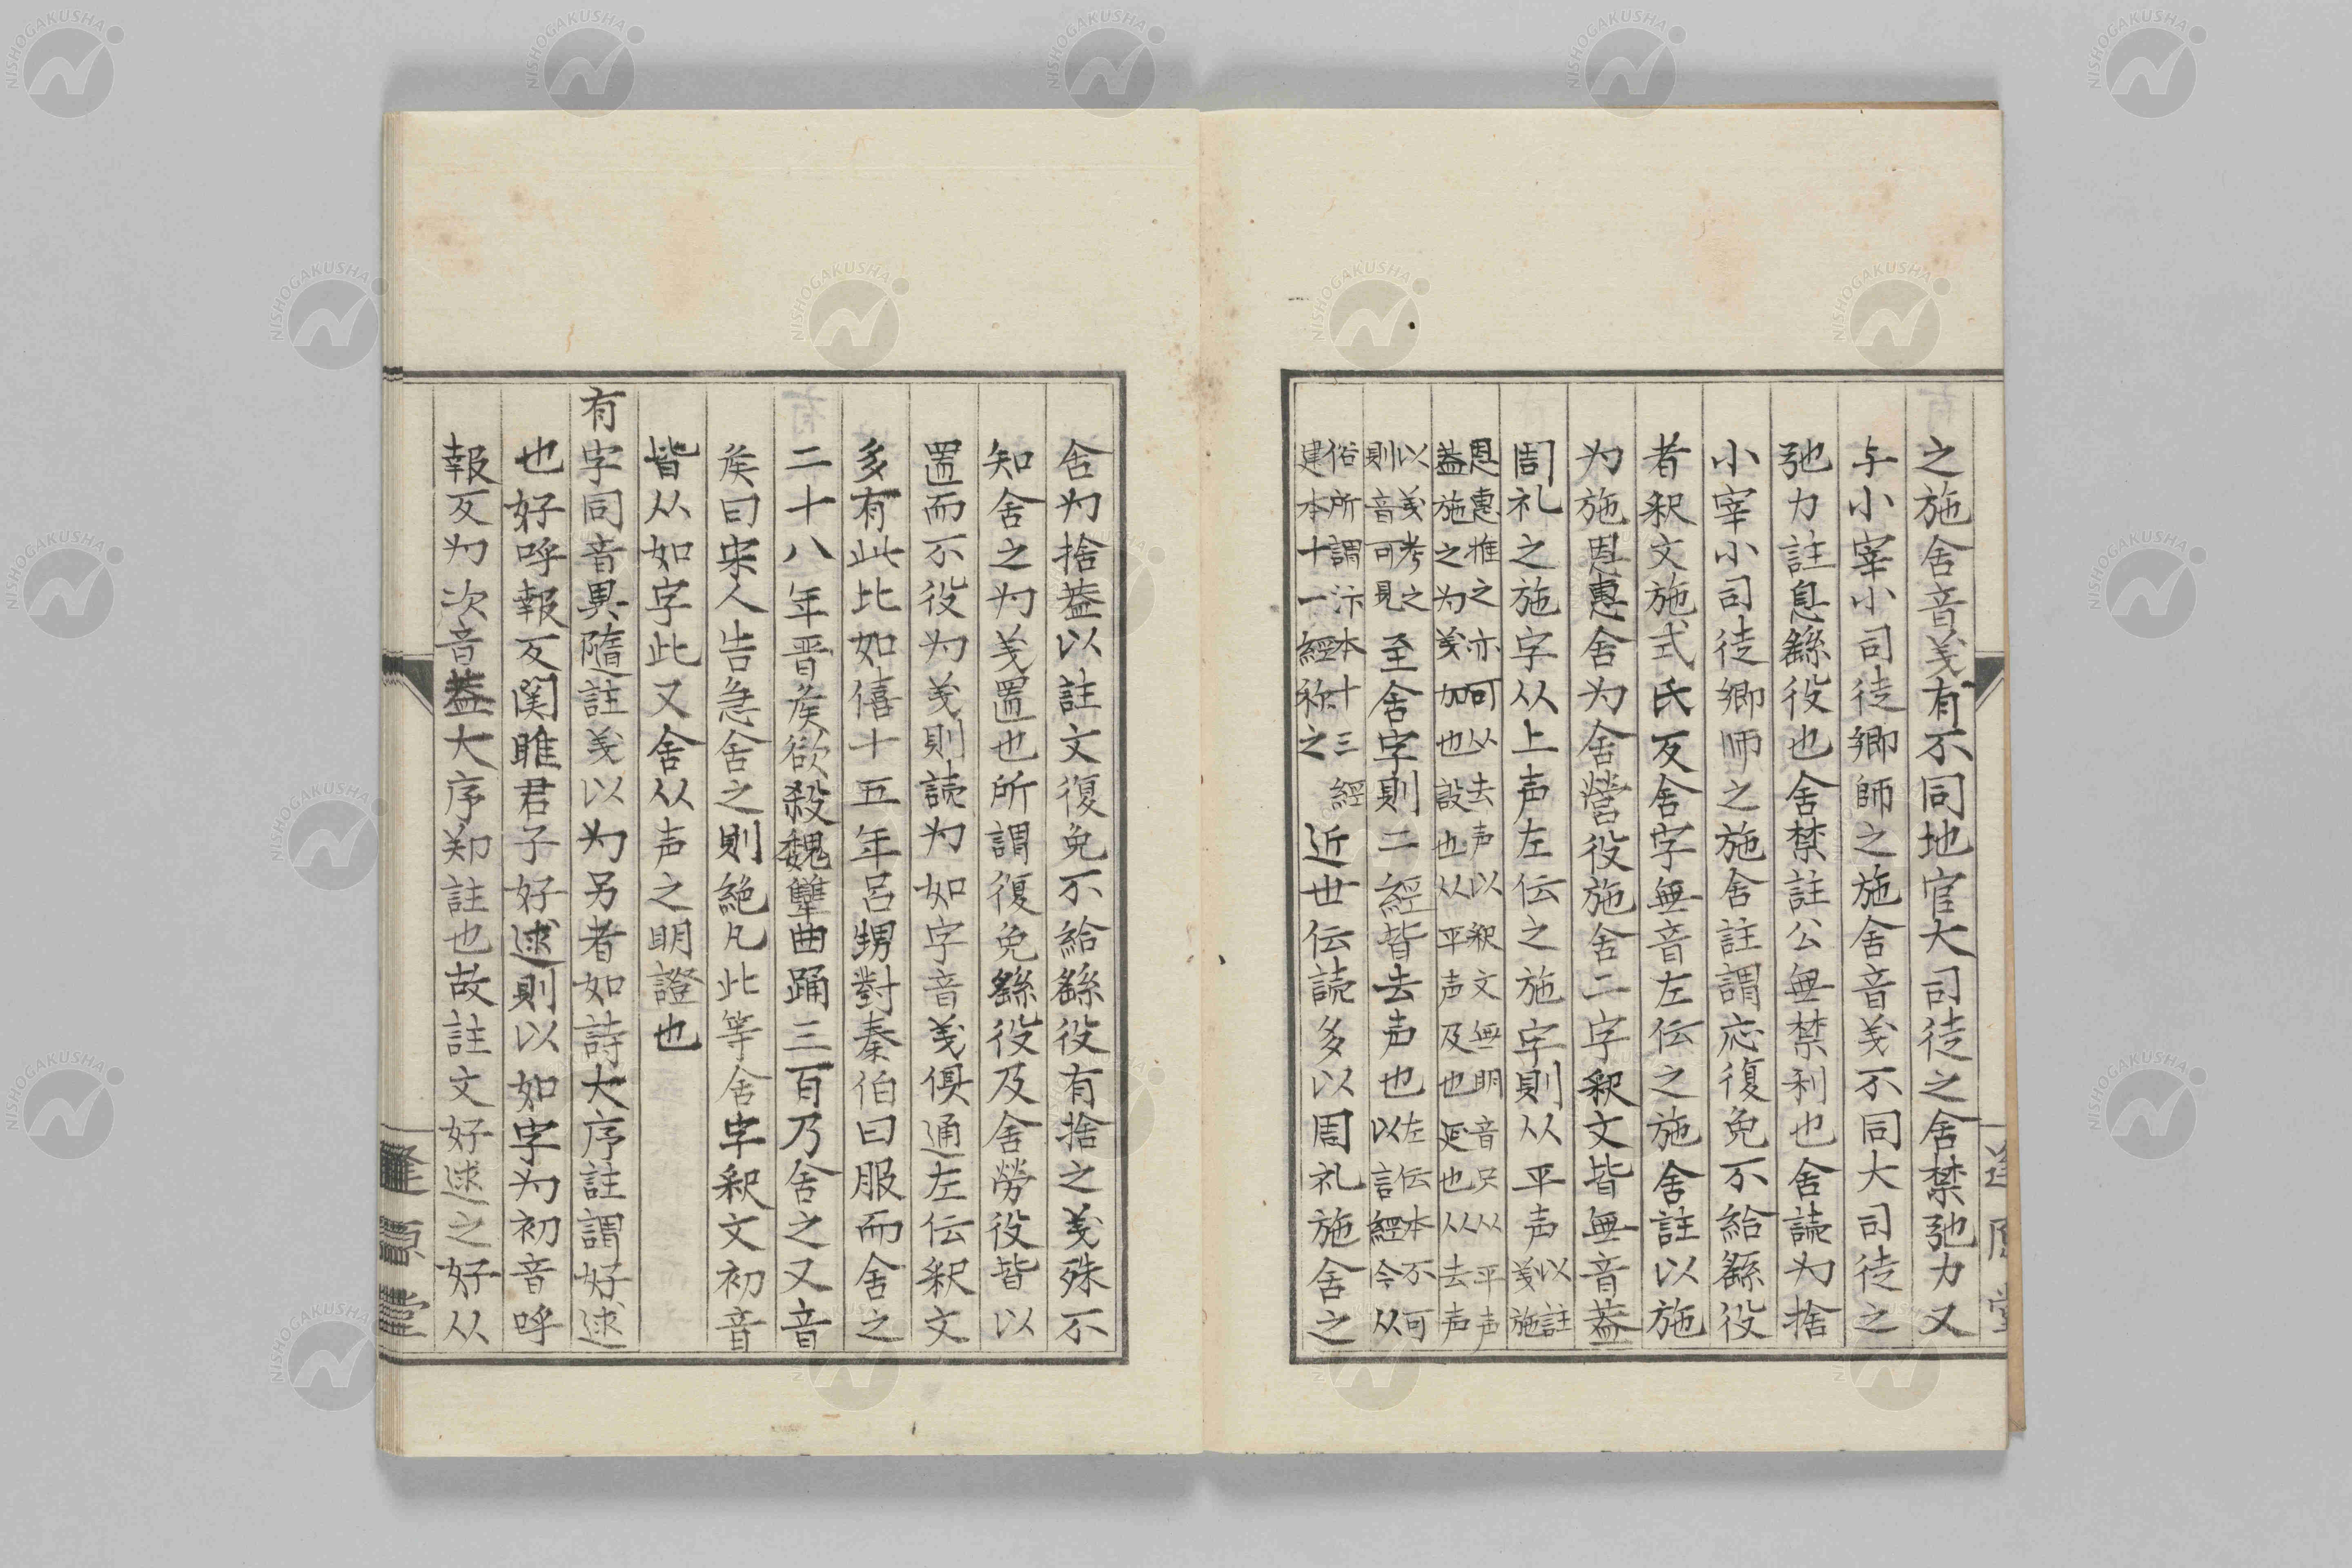 之施舍音义有不同地官大司徒之舍禁弛力又
与小宰小司徒卿師之施舍音义不同大司徒之
弛力註息繇役也舍禁註公無禁利也舍読为捨
小宰小司徒卿师之施舍註謂応復免不給繇役
者釈文施式氏反舍字無音左伝之施舍註以施
为施恩惠舍为舍营役施舍二字釈文皆無音蓋
周礼之施字从上声左伝之施字則从平声以註义施
恩惠推之亦可以去声以釈文無明音只从平声
蓋施之为义加也設也从平声及也延也从去声
以义考之則音可見至舍字則二経皆去声也左伝本不可以言經今从
俗所謂汴本十三經建本十一經称之近世伝読多以周礼施舍之
逢原堂
舍为捨蓋以註文復免不給繇役有捨之义殊不
知舍之为义置也所謂復免繇役及舍勞役皆以
置而不役为义則読为如字音义俱通左伝釈文
多有此比如僖十五年呂甥對秦伯曰服而舍之
二十八年晋矦欲殺魏犫曲踊三百乃舍之又音
矦曰宋人告急舍之則絶凡此等舍字釈文初音
皆从如字此又舍从声之明證也
有字同音異隨註义以为另者如詩大序註謂好逑
也好呼報反関雎君子好逑則以如字为初音呼
報反为次音蓋大序郑註也故註文好逑之好从
逢原堂
NISHOGAKUSHA